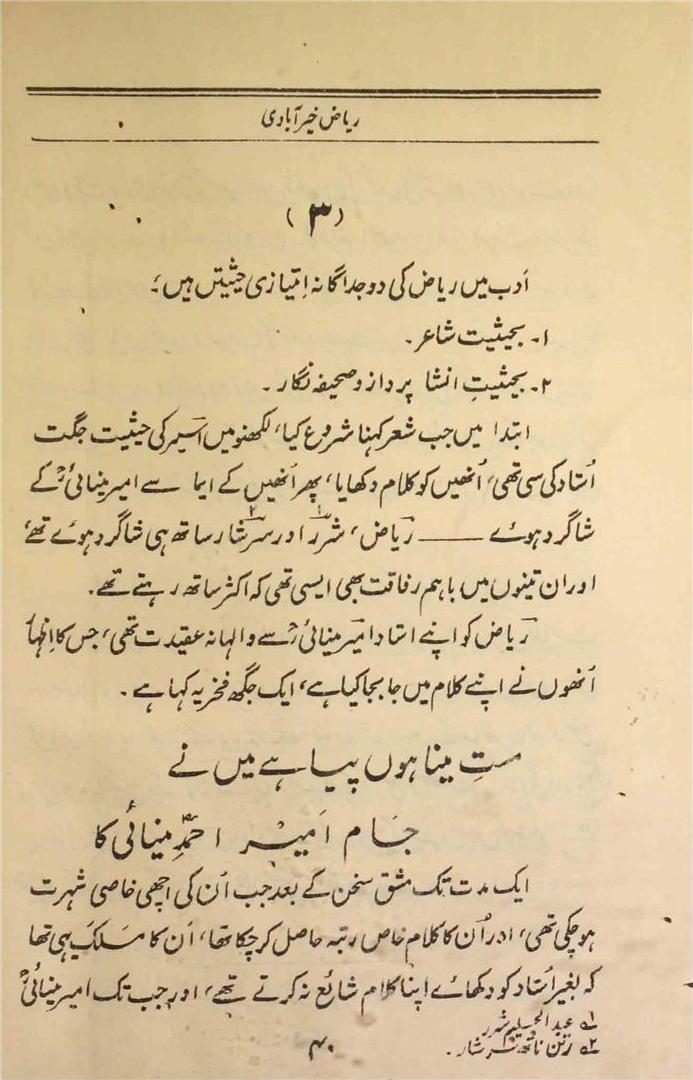 ریاض خیرآبادی
(۳)
اَدب میں ریاض کی دو جداگانہ اِمتیازی حیثیتیں ہیں؛
۱۔ بحیثیت شاعر۔
۲۔ بحیثیتِ انشا پرداز و صحیفہ نگار۔
ابتدا میں جب شعر کہنا شروع کیا، لکھنو میں اسیر کی حیثیت جگت
اُستاد کی سی تھی، اُنھیں کو کلام دکھایا، پھر اُنھیں کے ایما سے امیر مینائیؒ کے
شاگرد ہوئے ــــــ ریاض، شرر۱ اور سرشار۲ ساتھ ہی شاگرد ہوئے تھے
اور ان تینوں میں باہم رفاقت بھی ایسی تھی کہ اکثر ساتھ رہتے تھے۔
ریاض کو اپنے استاد امیر مینائیؒ سے والہانہ عقیدت تھی، جس کا اِظہار
اُنھوں نے اپنے کلام میں جا بجا کیا ہے، ایک جگہ فخریہ کہا ہے۔
مستِ مینا ہوں پیا ہے میں نے
جام امیر احمدِ مینائی کا
ایک مدت تک مشق سخن کے بعد جب اُن کی اچھی خاصی شہرت
ہو چکی تھی، اور اُن کا کلام خاص رتبہ حاصل کر چکا تھا، اُن کا مَسلک یہی تھا
کہ بغیر اُستاد کو دکھائے اپنا کلام شائع نہ کرتے تھے، اور جب تک امیر مینائیؒ
۱؎ عبدالحلیم شرر
۲؎ رتن ناتھ سرشار۔
۴۰